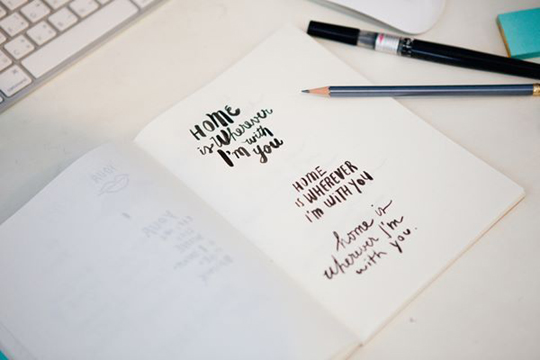 HOME
is Wherever
I'm with
you
HOME
IS WHEREVER
I'M WITH YOU
home is
wherever I'm
with you.